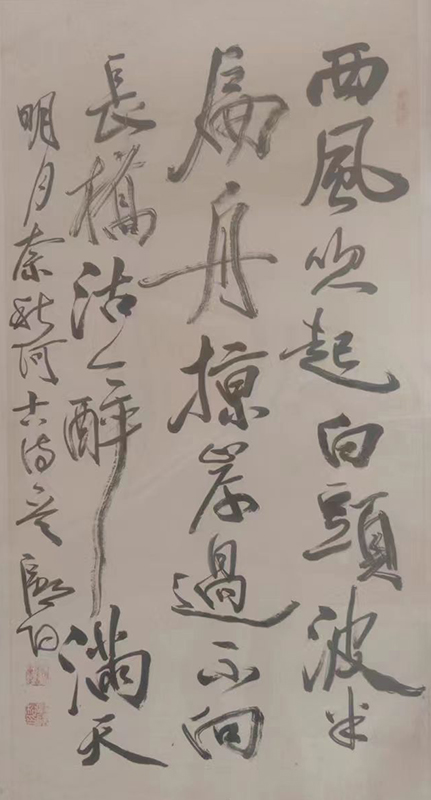 西風吹起白頭波
扁舟掠岸過不向
長橋沽一醉滿天
明月奈秋何古詩